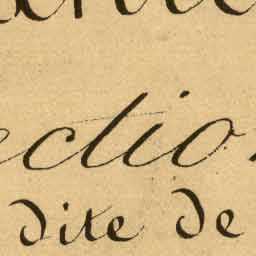 ectio
dite de